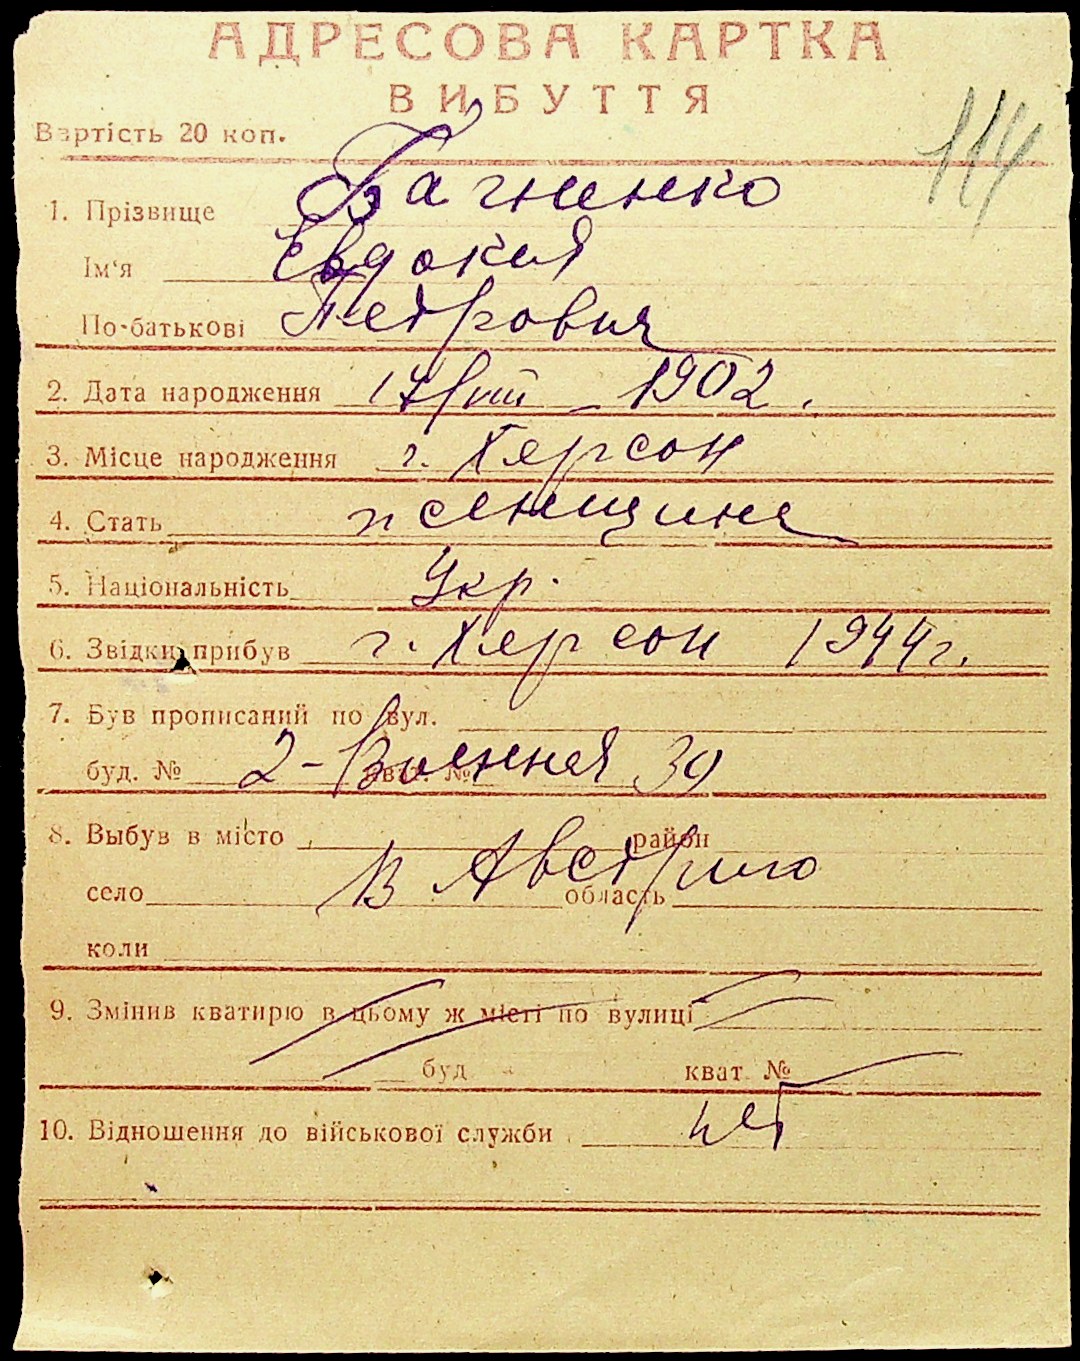 АДРЕСОВА КАРТКА
ВИБУТТЯ
Вартість 20 коп.
114
1. Прізвище Багненко
Ім‘я Евдокия
По-батькові Петровна
2. Дата народження 17/VIII – 1902.
3. Місце народження г. Херсон
4. Стать женщина
5. Національність Укр.
6. Звідки прибув г. Херсон 1944 г.
7. Був прописаний по вул.
буд. № 2-Военная кварт. № 39
8. Выбув в місто район
село В Австрию область
коли
9. Змінив кватирю в цьому ж місті по вулиці
буд кват №
10. Відношення до військової служби нет